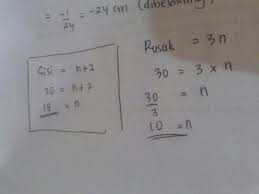 = -1/24 = -24 cm (dibelakang)
Sisi = n+2
20 = n+2
18 = n
Rusuk = 3n
30 = 3 × n
30/3 = n
10 = n